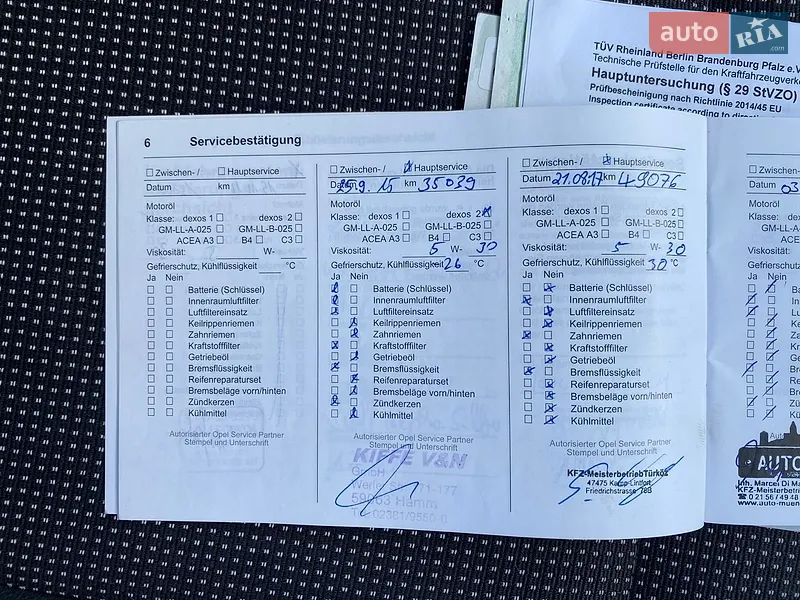 auto RIA .com
TÜV Rheinland Berlin Brandenburg Pfalz e.V
Technische Prüfstelle für den Kraftfahrzeugverke
Hauptuntersuchung (§ 29 StVZO)
Prüfbescheinigung nach Richtlinie 2014/45 EU
Inspection certificate according to
6 Servicebestätigung
Zwischen- / Hauptservice
Datum km
Motoröl
Klasse: dexos 1 dexos 2
GM-LL-A-025 GM-LL-B-025
ACEA A3 B4 C3
Viskosität: W-
Gefrierschutz, Kühlflüssigkeit °C
Ja Nein
Batterie (Schlüssel)
Innenraumluftfilter
Luftfiltereinsatz
Keilrippenriemen
Zahnriemen
Kraftstofffilter
Getriebeöl
Bremsflüssigkeit
Reifenreparaturset
Bremsbeläge vorn/hinten
Zündkerzen
Kühlmittel
Autorisierter Opel Service Partner
Stempel und Unterschrift
Zwischen- / Hauptservice
Datum 9.15 km 35039
Motoröl
Klasse: dexos 1 dexos 2
GM-LL-A-025 GM-LL-B-025
ACEA A3 B4 C3
Viskosität: 5 W- 30
Gefrierschutz, Kühlflüssigkeit 26 °C
Ja Nein
Batterie (Schlüssel)
Innenraumluftfilter
Luftfiltereinsatz
Keilrippenriemen
Zahnriemen
Kraftstofffilter
Getriebeöl
Bremsflüssigkeit
Reifenreparaturset
Bremsbeläge vorn/hinten
Zündkerzen
Kühlmittel
Autorisierter Opel Service Partner
Stempel und Unterschrift
KIFFE V&N
GmbH
59063 Hamm
Zwischen- / Hauptservice
Datum 21.08.17 km 49076
Motoröl
Klasse: dexos 1 dexos 2
GM-LL-A-025 GM-LL-B-025
ACEA A3 B4 C3
Viskosität: 5 W- 30
Gefrierschutz, Kühlflüssigkeit 30 °C
Ja Nein
Batterie (Schlüssel)
Innenraumluftfilter
Luftfiltereinsatz
Keilrippenriemen
Zahnriemen
Kraftstofffilter
Getriebeöl
Bremsflüssigkeit
Reifenreparaturset
Bremsbeläge vorn/hinten
Zündkerzen
Kühlmittel
Autorisierter Opel Service Partner
Stempel und Unterschrift
KFZ-Meisterbetrieb Türköz
47475 Kamp-Lintfort
Friedrichstrasse 78B
Zwischen-
Datum 03
Motoröl
Klasse: d
GM-LL-A
ACE
Viskosität:
Gefrierschutz
Ja Nein
Ba
Inn
Luf
Kei
Zah
Kra
Get
Bre
Rei
Bre
Zü
Kü
AUTO
Inh. Marcel Di Ma
KFZ-Meisterbetrie
0 21 56 / 49 48
www.auto-muen